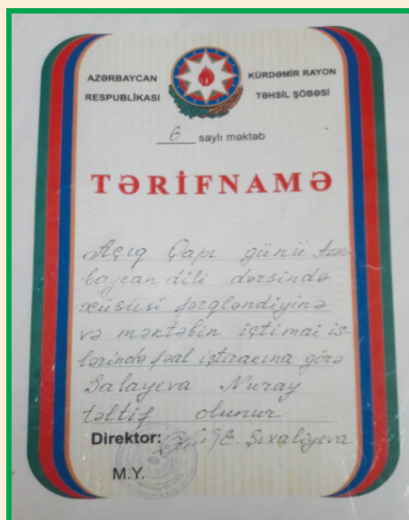 AZƏRBAYCAN
RESPUBLİKASI
KÜRDƏMİR RAYON
TƏHSİL ŞÖBƏSİ
6 saylı məktəb
TƏRİFNAMƏ
Açıq Qapı günü Azər-
baycan dili dərsində
xüsusi fərqləndiyinə
və məktəbin içtimai iş-
lərində fəal iştirakına görə
Salayeva Nuray
təltif olunur
Direktor: E. Şıxəliyeva
M.Y.